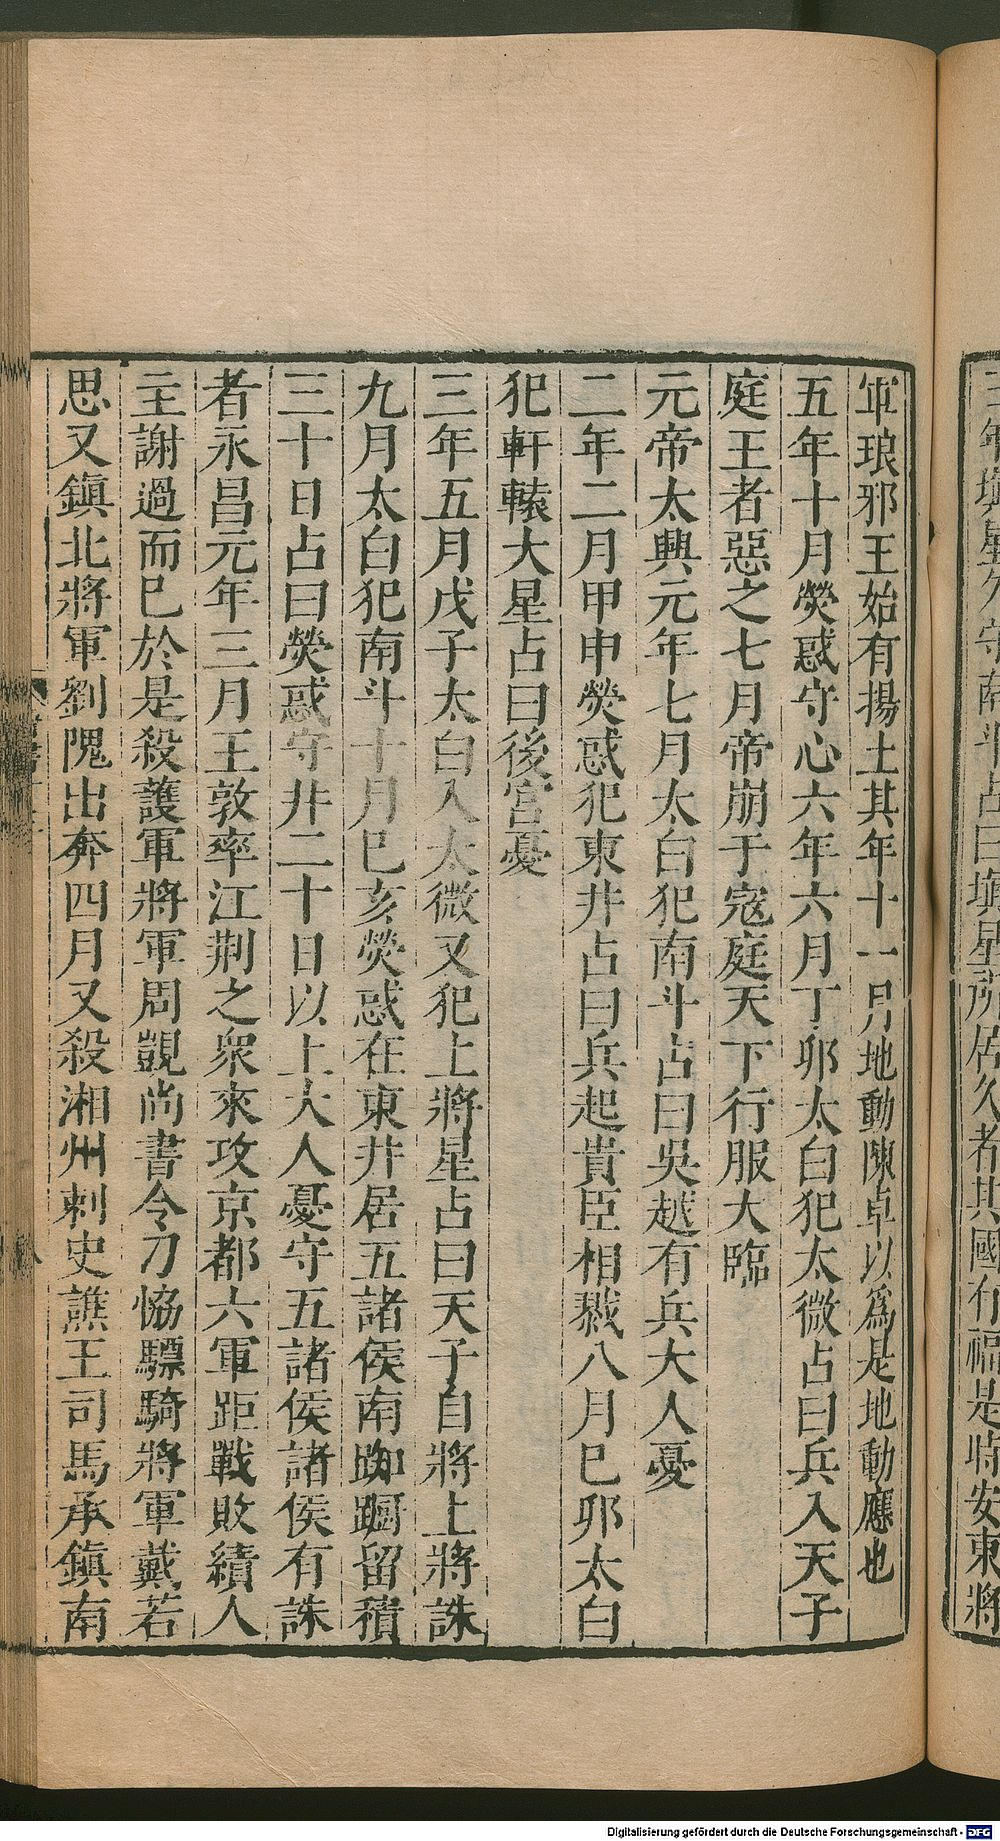 三年塡星久守南斗占曰塡星所居久者其國有福是時安東將
軍琅邪王始有揚土其年十一月地動陳卓以爲是地動應也
五年十月熒惑守心六年六月丁卯太白犯太微占曰兵入天子
庭王者惡之七月帝崩于寇庭天下行服大臨
元帝太興元年七月太白犯南斗占曰吳越有兵大人憂
二年二月甲申熒惑犯東井占曰兵起貴臣相戮八月巳卯太白
犯軒轅大星占曰後宮憂
三年五月戊子太白入太微又犯上將星占曰天子自將上將誅
九月太白犯南斗十月巳亥熒惑在東井居五諸侯南踟躕留積
三十日占曰熒惑守井二十日以上大人憂守五諸侯諸侯有誅
者永昌元年三月王敦率江荆之衆來攻京都六軍距戰敗績人
主謝過而巳於是殺護軍將軍周覬尚書令刀恊驃騎將軍戴若
思又鎭北將軍劉隗出奔四月又殺湘州刺史譙王司馬承鎭南
Digitalisierung gefördert durch die Deutsche Forschungsgemeinschaft - DFG